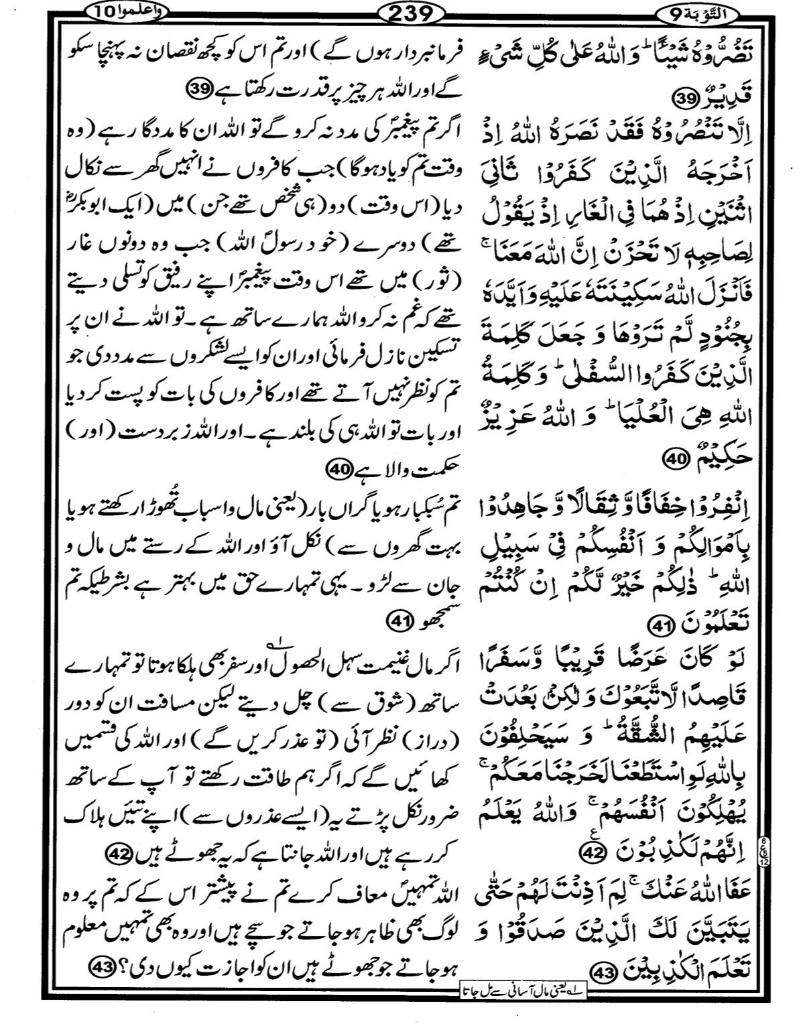 التَّوْبَة 9
239
واعلموا 10
تَضُرُّوْهُ شَيْـًٔا ؕ وَاللّٰهُ عَلٰى كُلِّ شَىْءٍ
قَدِيْرٌ 39
اِلَّا تَنْصُرُوْهُ فَقَدْ نَصَرَهُ اللّٰهُ اِذْ
اَخْرَجَهُ الَّذِيْنَ كَفَرُوْا ثَانِىَ
اثْنَيْنِ اِذْ هُمَا فِى الْغَارِ اِذْ يَقُوْلُ
لِصَاحِبِهٖ لَا تَحْزَنْ اِنَّ اللّٰهَ مَعَنَا ۚ
فَاَنْزَلَ اللّٰهُ سَكِيْنَتَهٗ عَلَيْهِ وَاَيَّدَهٗ
بِجُنُوْدٍ لَّمْ تَرَوْهَا وَ جَعَلَ كَلِمَةَ
الَّذِيْنَ كَفَرُوا السُّفْلٰى ؕ وَ كَلِمَةُ
اللّٰهِ هِىَ الْعُلْيَا ؕ وَ اللّٰهُ عَزِيْزٌ
حَكِيْمٌ 40
اِنْفِرُوْا خِفَافًا وَّ ثِقَالًا وَّ جَاهِدُوْا
بِاَمْوَالِكُمْ وَ اَنْفُسِكُمْ فِىْ سَبِيْلِ
اللّٰهِ ؕ ذٰلِكُمْ خَيْرٌ لَّكُمْ اِنْ كُنْتُمْ
تَعْلَمُوْنَ 41
لَوْ كَانَ عَرَضًا قَرِيْبًا وَّ سَفَرًا
قَاصِدًا لَّاتَّبَعُوْكَ وَ لٰكِنْۢ بَعُدَتْ
عَلَيْهِمُ الشُّقَّةُ ؕ وَ سَيَحْلِفُوْنَ
بِاللّٰهِ لَوِ اسْتَطَعْنَا لَخَرَجْنَا مَعَكُمْ ۚ
يُهْلِكُوْنَ اَنْفُسَهُمْ ۚ وَاللّٰهُ يَعْلَمُ
اِنَّهُمْ لَكٰذِبُوْنَ 42 ع
عَفَا اللّٰهُ عَنْكَ ۚ لِمَ اَذِنْتَ لَهُمْ حَتّٰى
يَتَبَيَّنَ لَكَ الَّذِيْنَ صَدَقُوْا وَ
تَعْلَمَ الْكٰذِبِيْنَ 43
فرمانبردار ہوں گے) اور تم اس کو کچھ نقصان نہ پہنچا سکو
گے اور اللہ ہر چیز پر قدرت رکھتا ہے 39
اگر تم پیغمبرؐ کی مدد نہ کرو گے تو اللہ ان کا مددگار ہے (وہ
وقت تم کو یاد ہوگا) جب کافروں نے انہیں گھر سے نکال
دیا (اس وقت) دو (ہی شخص تھے جن) میں (ایک ابوبکرؓ
تھے) دوسرے (خود رسولؐ اللہ) جب وہ دونوں غار
(ثور) میں تھے اس وقت پیغمبرؐ اپنے رفیق کو تسلی دیتے
تھے کہ غم نہ کرو اللہ ہمارے ساتھ ہے۔ تو اللہ نے ان پر
تسکین نازل فرمائی اور ان کو ایسے لشکروں سے مدد دی جو
تم کو نظر نہیں آتے تھے اور کافروں کی بات کو پست کر دیا
اور بات تو اللہ ہی کی بلند ہے۔ اور اللہ زبردست (اور)
حکمت والا ہے 40
تم سُبکبار ہو یا گراں بار (یعنی مال و اسباب تھوڑا رکھتے ہو یا
بہت گھروں سے) نکل آؤ اور اللہ کے رستے میں مال و
جان سے لڑو۔ یہی تمہارے حق میں بہتر ہے بشرطیکہ تم
سمجھو 41
اگر مال غنیمت سہل الحصول ۱؎ اور سفر بھی ہلکا ہوتا تو تمہارے
ساتھ (شوق سے) چل دیتے لیکن مسافت ان کو دور
(دراز) نظر آئی (تو عذر کریں گے) اور اللہ کی قسمیں
کھائیں گے کہ اگر ہم طاقت رکھتے تو آپ کے ساتھ
ضرور نکل پڑتے یہ (ایسے عذروں سے) اپنے تئیں ہلاک
کر رہے ہیں اور اللہ جانتا ہے کہ یہ جھوٹے ہیں 42
اللہ تمہیںؐ معاف کرے تم نے پیشتر اس کے کہ تم پر وہ
لوگ بھی ظاہر ہو جاتے جو سچے ہیں اور وہ بھی تمہیں معلوم
ہو جاتے جو جھوٹے ہیں ان کو اجازت کیوں دی؟ 43
۱؎ یعنی مال آسانی سے مل جاتا